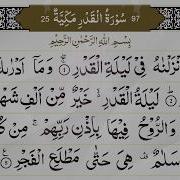 25 سُورَةُ الْقَدْرِ مَكِّيَّةٌ 97
بِسْمِ اللهِ الرَّحْمٰنِ الرَّحِيْمِ
نْزَلْنٰهُ فِيْ لَيْلَةِ الْقَدْرِ ۝۱ وَمَاۤ اَدْرٰىكَ
۝۲ لَيْلَةُ الْقَدْرِ خَيْرٌ مِّنْ اَلْفِ شَهْ
وَالرُّوْحُ فِيْهَا بِاِذْنِ رَبِّهِمْ مِنْ كُلِّ
سَلٰمٌ هِيَ حَتّٰى مَطْلَعِ الْفَجْرِ ۝۵